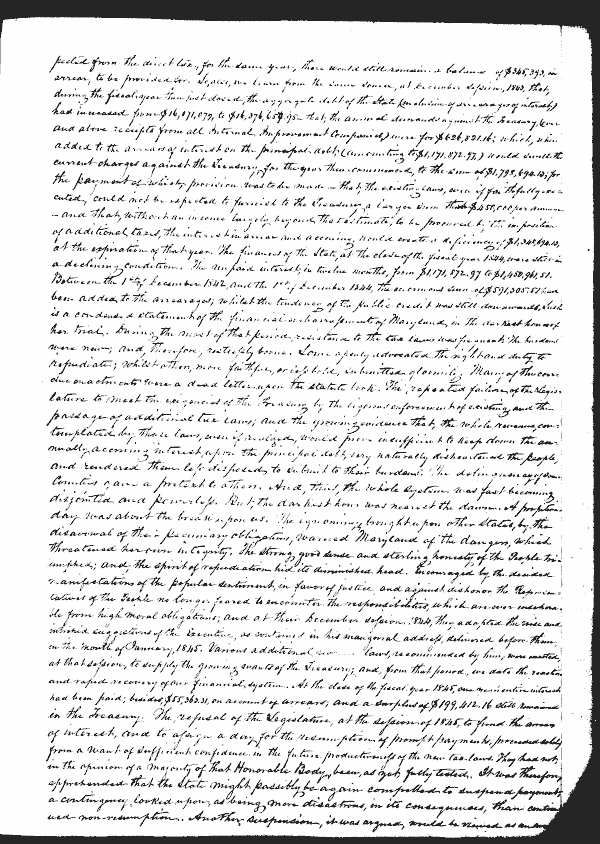 pected from the direct tax, for the same year, there would still remain a balance of $345,393, in
arrear, to be provided for. Again, we learn from the same source, at December session, 1843, that,
during the fiscal year then just closed, the aggregate debt of the State (exclusive of arrearages of interest)
had increased from $16,171,079, to $16,376,659.95 - that the annual demands against the Treasury, (over
and above receipts from all Internal Improvement Companies,) were for $626,821.16; which, when
added to the arrears of interest on the principal debt, (amounting to $1,171,872.97,) would swell the
current charges against the Treasury, for the year then commenced, to the sum of $1,798,694.13, for
the payment of which, provision was to be made - that, the existing laws, even if faithfully exe-
cuted, could not be expected to furnish to the Treasury a larger sum than $450,000 per annum
- and that, without an income largely beyond the estimate, to be procured by the imposition
of additional taxes, the interest in arrear and accruing, would create a deficiency of $1,348,694.13,
at the expiration of that year. The finances of the State, at the close of the fiscal year 1844, were still in
a declining condition. The unpaid interest, in twelve months, from $1,171,872.97 to $1,450,961.51.
Between the 1st of December 1842, and the 1st of December 1844, the enormous sum of $591,305.51 had
been added to the arrearages, whilst the tendency of the public credit was still downwards. Such
is a condensed statement of the financial embarrassments of Maryland, in the darkest hours of
her trial. During the most of that period, resistance to the tax laws was frequent. The burdens
were new; and, therefore, restlessly borne. Some openly advocated the right and duty to
repudiate; whilst others, more faithful, or less bold, submitted gloomily. Many of the coer-
cive enactments were a dead letter upon the statute book. The repeated failures of the Legis-
lature to meet the exigencies of the Treasury by the rigorous enforcement of existing and the
passage of additional tax laws; and the growing evidence that, the whole revenue, con-
templated by those laws, even if realized, would prove insufficient to keep down the an-
nually accruing interest upon the principal debt, very naturally disheartened the people,
and rendered them less disposed to submit to their burdens. The delinquency of some
Counties gave a pretext to others. And, thus, the whole system was fast becoming
disjointed and powerless. But, the darkest hour was nearest the dawn. A propitious
day was about to break upon us. The ignominy, brought upon other States, by the
disavowal of their pecuniary obligations, warned Maryland of the dangers, which
threatened her own integrity. The strong good sense and sterling honesty of the People tri-
umphed; and the spirit of repudiation hid its diminished head. Encouraged by the decided
manifestations of the popular sentiment, in favor of justice and against dishonor the Represen-
tatives of the People no longer feared to encounter the responsibilities, which are ever insepara-
ble from high moral obligations; and at their December session, 1844, they adopted the wise and
intrepid suggestions of the Executive, as contained in his inaugural address, delivered before them,
in the month of January, 1845. Various additional laws, recommended by him, were enacted,
at that session, to supply the growing wants of the Treasury; and, from that period, we date the reaction
and rapid recovery of our financial system. At the close of the fiscal year 1845, one year's entire interest
had been paid; besides, $55,362.31, on account of arrears; and a surplus of $199,412.16 still remained
in the Treasury. The refusal of the Legislature, at the session of 1845, to fund the arrears
of interest, and to assign a day for the resumption of prompt payments, proceeded solely
from a want of sufficient confidence in the future productiveness of the new tax laws. They had not,
in the opinion of a majority of that Honorable Body, been, as yet, fully tested. It was therefore,
apprehended that the State might possibly be again compelled to suspend payments,
a contingency, looked upon, as being more disastrous, in its consequences, than contin-
ued non-resumption. Another suspension, it was argued, would be viewed as an